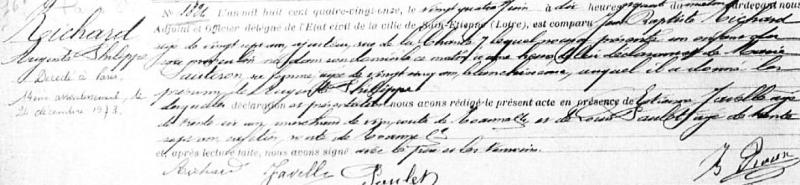 Richard
Auguste Philippe
Décédé à Paris
14ème arrondissement, le
24 décembre 1973.
N° L'an mil huit cent quatre-vingt-onze, le vingt quatre juin à dix heures du matin pardevant nous
Adjoint et Officier délégué de l'Etat civil de la ville de Saint-Etienne (Loire), est comparu Jean Baptiste Richard
âgé de vingt sept ans, ajusteur, rue de la lequel nous a présenté un enfant du
sexe masculin né dans son domicile ce matin à heure de lui déclarant et de Marie
sa femme âgée de vingt cinq ans, blanchisseuse, auquel il a donné les
prénoms de Auguste Philippe
Lesquelles déclaration et présentation nous avons rédigé le présent acte en présence de Etienne Favelle âgé
de trente six ans, marchand de vin, route de Roanne et de Louis Paulet âgé de trente
sept ans, route de Roanne
et, après lecture faite, nous avons signé avec le père et les témoins.
Richard Favelle Paulet